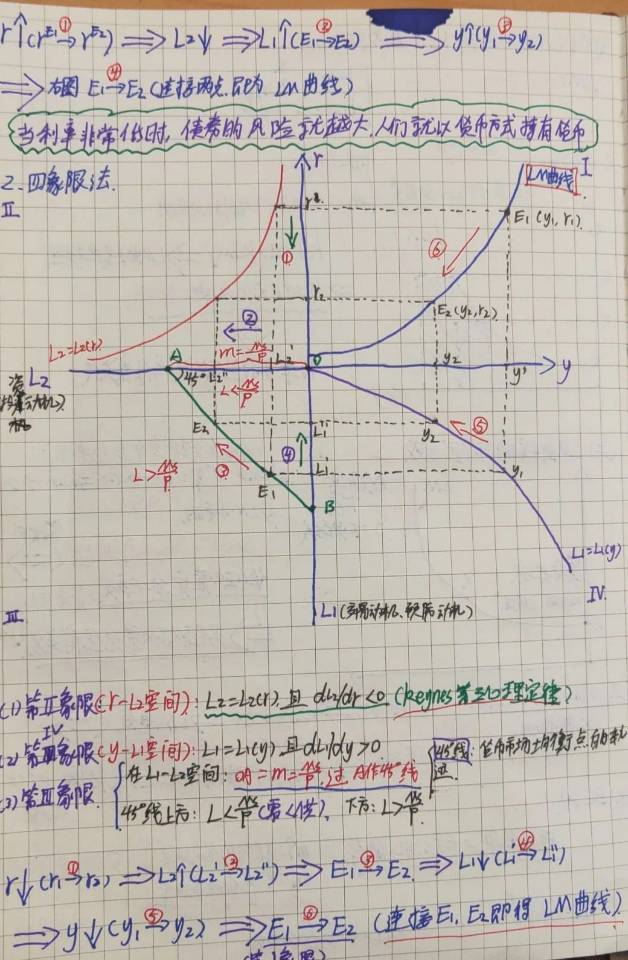 r↑(r^E1 ①→ r^E2) ⟹ L2↓ ⟹ L1↑(E1 ②→ E2) ⟹ y↑(y1 ③→ y2)
⟹ 右图 E1 ④→ E2 (连接两点,即为 LM曲线)
当利率非常低时,债券的风险就越大,人们就以货币方式持有货币
2. 四象限法.
r
LM曲线
I
II
r1
E1(y1, r1)
①
⑥
r2
E2(y2, r2)
②
L2=L2(r)
m=Ms/P
L2'
A
O
L2
45°
L2''
y2
y1
y
L<Ms/P
E2
L1''
y2
⑤
③
④
L>Ms/P
E1
L1'
y1
B
L1=L1(y)
III
L1(交易动机、预防动机)
IV
(1) 第II象限(r-L2空间): L2=L2(r), 且 dL2/dr<0 (Keynes第三心理定律)
IV
(2) 第象限(y-L1空间): L1=L1(y), 且dL1/dy>0
(3) 第III象限.
在L1-L2空间: OA=m=Ms/P, 过A作45°线
45°线上方: L<Ms/P(需<供), 下方: L>Ms/P
45°线: 货币市场均衡点的轨迹.
r↓(r1 ①→ r2) ⟹ L2↑(L2' ②→ L2'') ⟹ E1 ③→ E2 ⟹ L1↓(L1' ④→ L1'')
⟹ y↓(y1 ⑤→ y2) ⟹ E1 ⑥→ E2 (连接E1, E2即得LM曲线)
(第1象限)